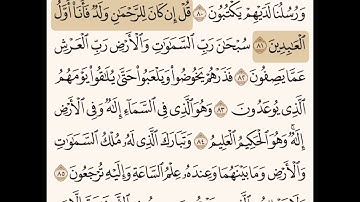 وَرُسُلُنَا لَدَيْهِمْ يَكْتُبُونَ ٨٠ قُلْ إِن كَانَ لِلرَّحْمَٰنِ وَلَدٌ فَأَنَا۠ أَوَّلُ
ٱلْعَٰبِدِينَ ٨١ سُبْحَٰنَ رَبِّ ٱلسَّمَٰوَٰتِ وَٱلْأَرْضِ رَبِّ ٱلْعَرْشِ
عَمَّا يَصِفُونَ ٨٢ فَذَرْهُمْ يَخُوضُوا۟ وَيَلْعَبُوا۟ حَتَّىٰ يُلَٰقُوا۟ يَوْمَهُمُ
ٱلَّذِى يُوعَدُونَ ٨٣ وَهُوَ ٱلَّذِى فِى ٱلسَّمَآءِ إِلَٰهٌ وَفِى ٱلْأَرْضِ
إِلَٰهٌ وَهُوَ ٱلْحَكِيمُ ٱلْعَلِيمُ ٨٤ وَتَبَارَكَ ٱلَّذِى لَهُۥ مُلْكُ ٱلسَّمَٰوَٰتِ
وَٱلْأَرْضِ وَمَا بَيْنَهُمَا وَعِندَهُۥ عِلْمُ ٱلسَّاعَةِ وَإِلَيْهِ تُرْجَعُونَ ٨٥